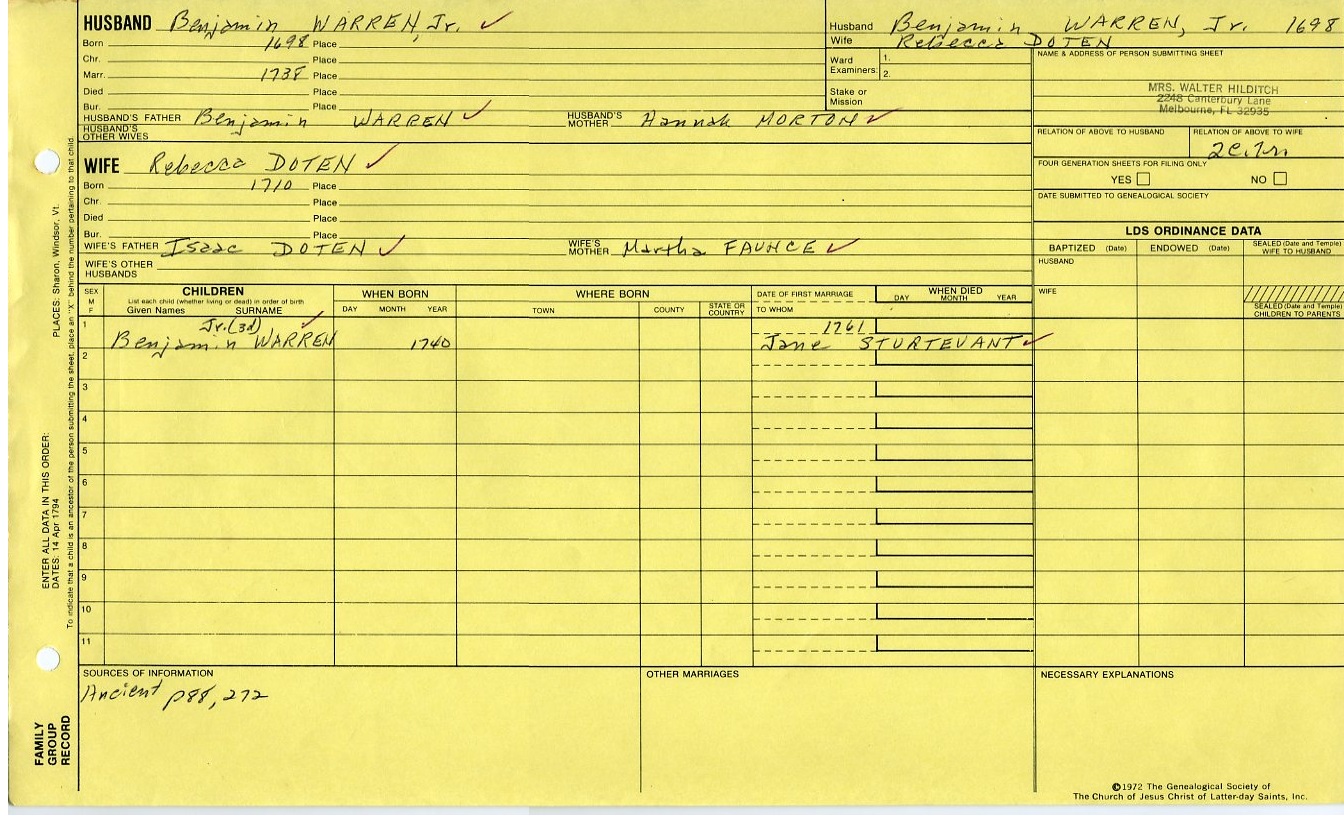 HUSBAND Benjamin WARREN, Jr. ✓
Born 1698 Place
Chr. Place
Marr. 1738 Place
Died Place
Bur. Place
HUSBAND'S FATHER Benjamin WARREN ✓ HUSBAND'S MOTHER Hannah MORTON ✓
HUSBAND'S OTHER WIVES
WIFE Rebecca DOTEN ✓
Born 1710 Place
Chr. Place
Died Place
Bur. Place
WIFE'S FATHER Isaac DOTEN ✓ WIFE'S MOTHER Martha FAUNCE ✓
WIFE'S OTHER HUSBANDS
Husband Benjamin WARREN, Jr. 1698
Wife Rebecca DOTEN
Ward Examiners: 1.
2.
Stake or Mission
NAME & ADDRESS OF PERSON SUBMITTING SHEET
MRS. WALTER HILDITCH
2248 Canterbury Lane
Melbourne, FL 32935
RELATION OF ABOVE TO HUSBAND RELATION OF ABOVE TO WIFE
2C.7m
FOUR GENERATION SHEETS FOR FILING ONLY
YES NO
DATE SUBMITTED TO GENEALOGICAL SOCIETY
LDS ORDINANCE DATA
BAPTIZED (Date) ENDOWED (Date) SEALED (Date and Temple) WIFE TO HUSBAND
HUSBAND
WIFE
SEALED (Date and Temple) CHILDREN TO PARENTS
SEX M F CHILDREN WHEN BORN WHERE BORN DATE OF FIRST MARRIAGE WHEN DIED
List each child (whether living or dead) in order of birth
Given Names SURNAME DAY MONTH YEAR TOWN COUNTY STATE OR COUNTRY TO WHOM DAY MONTH YEAR
1 Jr.(3d) ✓ 1761
Benjamin WARREN 1740 Jane STURTEVANT ✓
2
3
4
5
6
7
8
9
10
11
SOURCES OF INFORMATION OTHER MARRIAGES NECESSARY EXPLANATIONS
Ancient p88, 272
©1972 The Genealogical Society of
The Church of Jesus Christ of Latter-day Saints, Inc.
PLACES: Sharon, Windsor, Vt.
To indicate that a child is an ancestor of the person submitting the sheet, place an "X" behind the number pertaining to that child.
ENTER ALL DATA IN THIS ORDER:
DATES: 14 Apr 1794
FAMILY
GROUP
RECORD